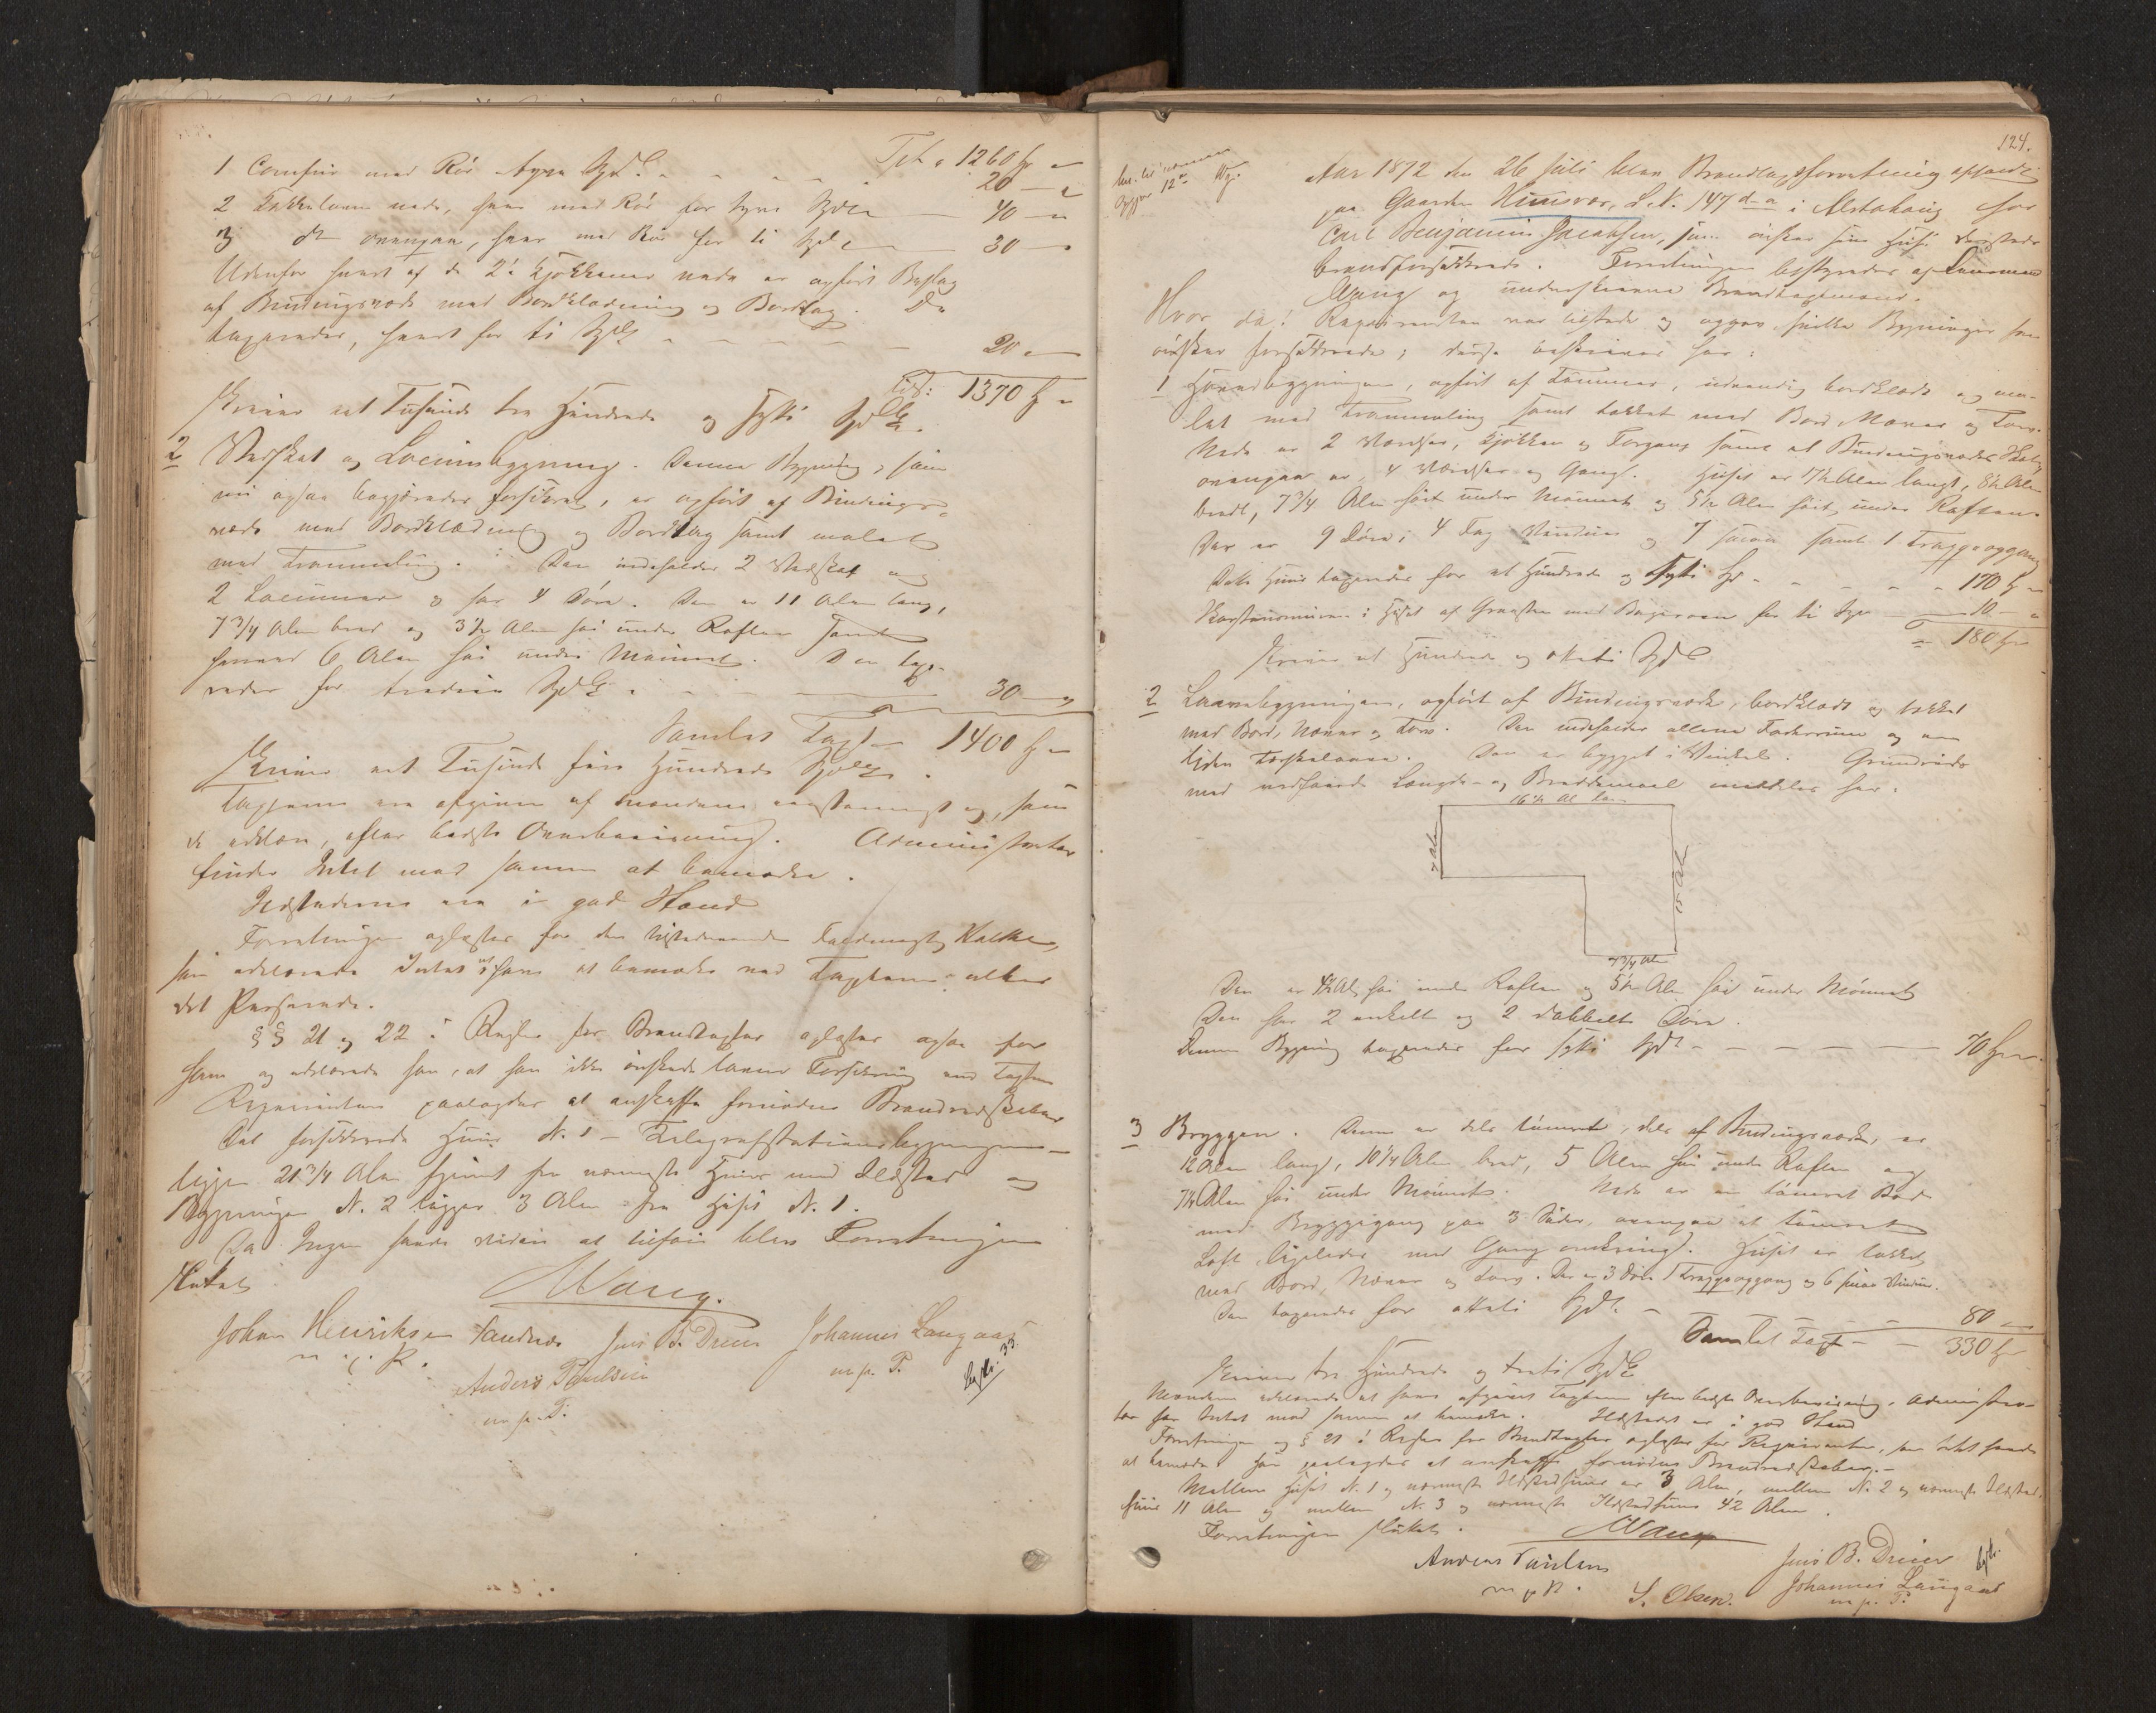 Trt. 1260
1 Comfur med Rör tyve Spd. 20
2 Kakkelovne nede, hver med Rör for tyve Spdlr 40
3 do ovenpaa, hver med Rör for ti Spd 30
Udenfor hvert af de 2de Kjøkkener nede er opført Bislag
af Bindingsværk med Bordklædning og Bordtag. De
taxeredes, hvert for ti Spd 20
Lats: 1370
Skriver et Tusinde tre Hundrede og sytti Spd.
2 Vedskat og Locumsbygning. Denne Bygning, som
nu ogsaa begjæredes forsikret, er opført af Bindings-
værk med Bordklædning og Bordtag samt malet
med Tranmaling. Den indeholder 2 Vedskat og
2 Locummer og har 4 Döre. Den er 11 Alen lang,
7 3/4 Alen bred og 3 1/2 Alen høi under Raften samt
6 Alen høi under Mønnet. Den taxe-
redes for tredive Spd 30
Samlet Taxt 1400
Skriver et Tusinde fire Hundrede Spd.
Taxterne ere afgivne af Mændene eenstemmigt og, som
de erklære, efter bedste Overbeviisning. Administrator
finder Intet mod samme at bemærke.
Ildstederne ere i god Stand
Forretningen oplæstes for den tilstedeværende
som erklærede Intet at have at bemærke ved Taxterne eller
det Passerede.
§§ 21 og 22 i Regler for Brandtaxter oplæstes ogsaa for
ham og erklærede han, at han ikke ønskede lavere Forsikring end Taxten
Rekvirenten paalagdes at anskaffe fornødne Brandredskaber
Det forsikrede Huus N. 1 - Telegrafstationsbygningen -
ligger 21 3/4 Alen fjernt fra nærmeste Huus med Ildsted og
Bygningen N. 2 ligger 3 Alen fra Huset N. 1.
Da Ingen havde videre at tilføie blev Forretningen
sluttet
Wang.
Johan Henriksen Sandnæs Jens B. Dreier Johannes Langaas
m. p. P. m. p. P.
Anders Paulsen
m. p. P.
124.
Aar 1872 den 26 Juli blev Brandtaxtforretning afholdt
paa Gaarden L. N. 147 d-a i Alstahoug for
Carl Benjamin Jacobsen, som ønsker sine Huse dersteds
brandforsikrede. Forretningen bestyredes af Lensmand
Wang og underskrevne Brandtaxtmænd.
Hvor da! Rekvirenten var tilstede og opgav hvilke Bygninger han
ønsker forsikrede; disse beskrives her:
1 Hovedbygningen, opført af Tømmer, udvendig bordklædt og ma-
let med Tranmaling samt tækket med Bord Næver og Torv.
Nede er 2 Værelser, Kjøkken og Forgang samt et Bindingsværks
ovenpaa er 4 Værelser og Gang. Huset er Alen langt, 8 1/2 Alen
bredt, 7 3/4 Alen høit under Mønnet og 5 1/2 Alen høit under Raften.
Der er 9 Döre, 4 Fag Vinduer og 7 samt 1 Trappeopgang
Dette Huus taxeredes for et Hundrede og sytti Sp 170
Skorsteensmuren i Huset af Graasteen med Bagerovn for ti Spd 10
180
Skriver et Hundrede og otteti Spd
2 Laavebygningen, opført af Bindingsværk, bordklædt og tækket
med Bord, Næver og Torv. Den indeholder alleene Foderrum og en
liden Tærskelaave. Den er bygget i Vinkel. Grundrids
med vedføiede Længde- og Breddemaal meddeles her:
16 1/2 Al
7 Alen
15 Al
7 3/4 Alen
Den er 4 1/2 Al. høi under Raften og 5 1/2 Alen høi under Mønnet
Den har 2 enkelte og 2 dobbelte Döre.
Denne Bygning taxeredes for sytti Spd 70
3 Bryggen. Denne er dels tømret, dels af Bindingsværk, er
12 Alen lang, 10 1/4 Alen bred, 5 Alen høi under Raften og
7 1/2 Alen høi under Mønnet. Nede er en tømret Bod
med Bryggegang paa 3 Sider, ovenpaa et tømret
Loft, ligeledes med Gang omkring. Huset er tækket
med Bord, Næver og Torv. Der er 3 Döre 1 Trappeopgang og 6 smaa Vinduer.
Den taxeredes for otteti Spd. 80
Samlet Taxt 330
Skriver tre Hundrede og treti Spd
Mændene erklærede at have afgivet Taxterne efter bedste Overbeviisning. Administra-
tor har Intet mod samme at bemærke. Ildstedet er i god Stand
Forretningen og § 21 i Regler for Brandtaxter oplæstes for Rekvirenten, som Intet havde
at bemærke han paalagdes at anskaffe fornødne Brandredskaber.-
Mellem Huset N. 1 og nærmeste Ildstedhuus er 3 Alen, mellem N. 2 og nærmeste Ildsted-
huus 11 Alen og mellem N. 3 og nærmeste Ildstedhuus 42 Alen.
Forretningen sluttet.
Wang
Anders Paulsen Jens B. Dreier
m p P. S. Olsen. Johannes Langaas
m. p. P.